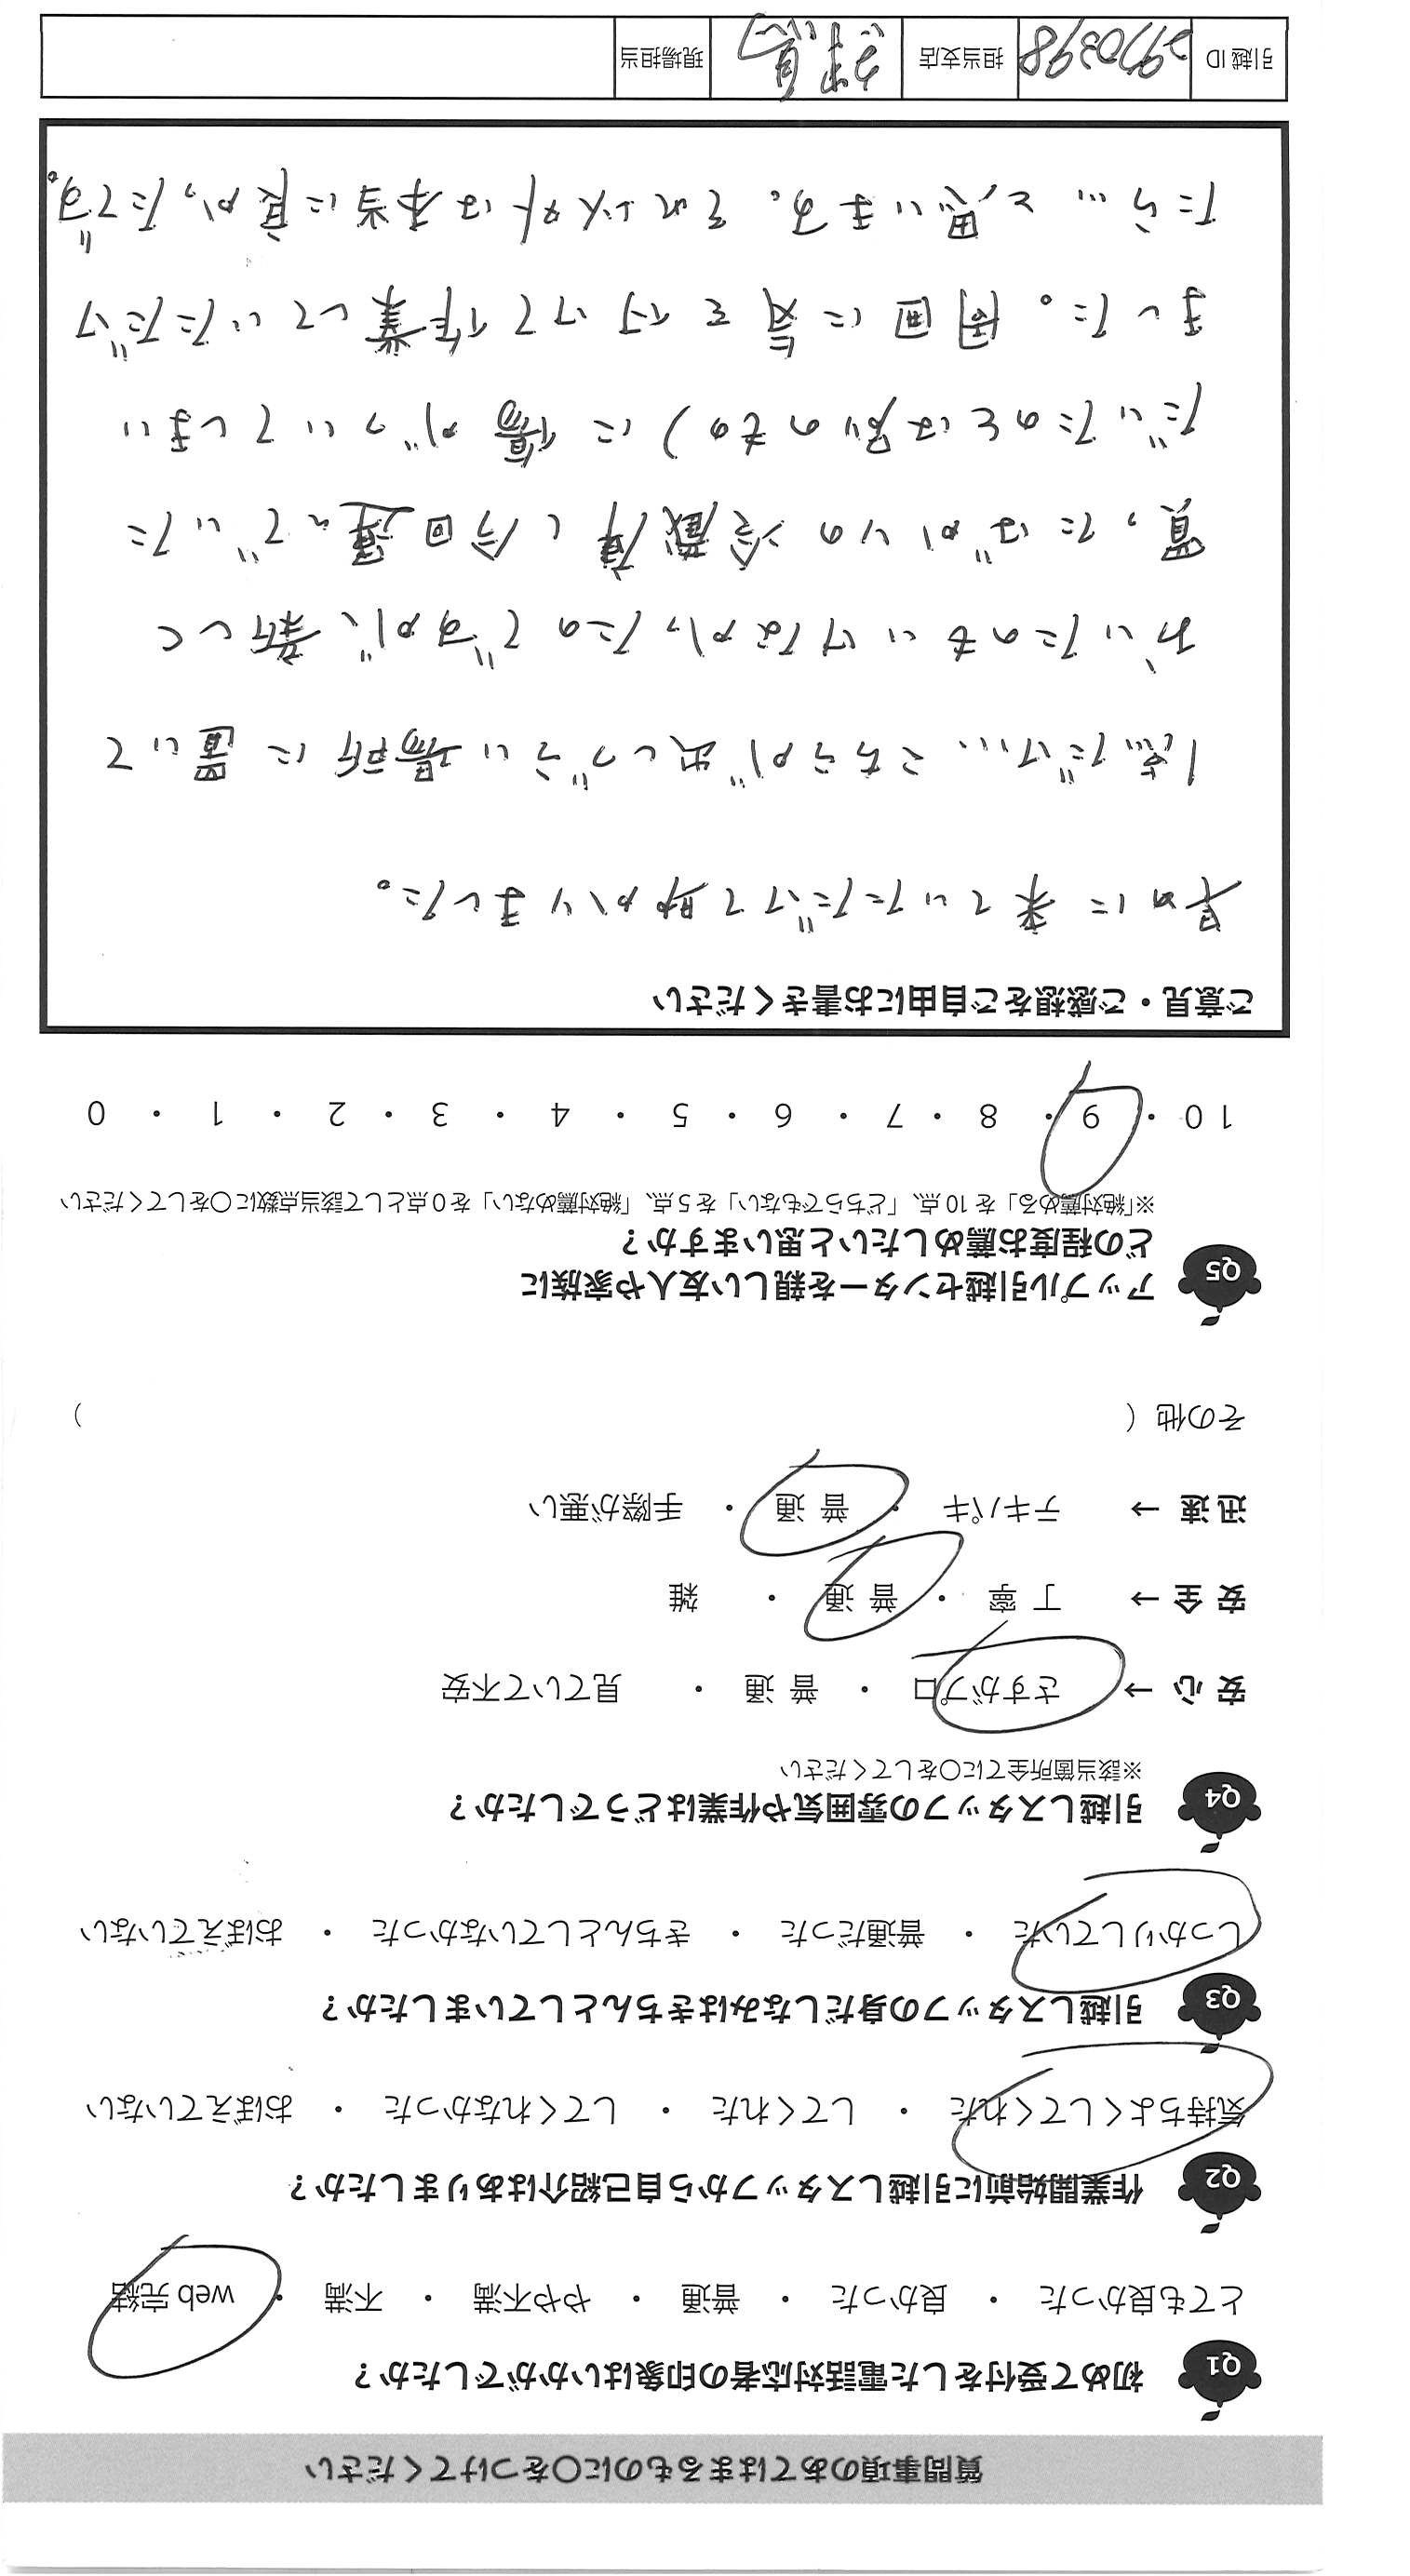 質問事項のあてはまるものに○をつけてください
Q1 初めて受付をした電話対応者の印象はいかがでしたか?
とても良かった ・ 良かった ・ 普通 ・ やや不満 ・ 不満 ・ web 完結
Q2 作業開始前に引越しスタッフから自己紹介はありましたか?
気持ちよくしてくれた ・ してくれた ・ してくれなかった ・ おぼえていない
Q3 引越しスタッフの身だしなみはきちんとしていましたか?
しっかりしていた ・ 普通だった ・ きちんとしていなかった ・ おぼえていない
Q4 引越しスタッフの雰囲気や作業はどうでしたか?
※該当箇所全てに○をしてください
安 心 → さすがプロ ・ 普 通 ・ 見ていて不安
安 全 → 丁 寧 ・ 普 通 ・ 雑
迅 速 → テキパキ ・ 普 通 ・ 手際が悪い
その他 ( )
Q5 アップル引越センターを親しい友人や家族に
どの程度お薦めしたいと思いますか?
※「絶対薦める」を 10 点、「どちらでもない」を 5 点、「絶対薦めない」を 0 点として該当点数に○をしてください
10 ・ 9 ・ 8 ・ 7 ・ 6 ・ 5 ・ 4 ・ 3 ・ 2 ・ 1 ・ 0
ご意見・ご感想をご自由にお書きください
早めに来ていただけて助かりました。
1点だけ… こちらが出しづらい場所に置いて
おいたのもいけなかったのですが、新しく
買ったばかりの冷蔵庫(今回運んでいた
だいたのとは別のもの)に傷がついてしまい
ました。周囲に気を付けて作業していただけ
たら… と思います。それ以外は本当に良かったです。
引越 ID 2970398 担当支店 現場担当